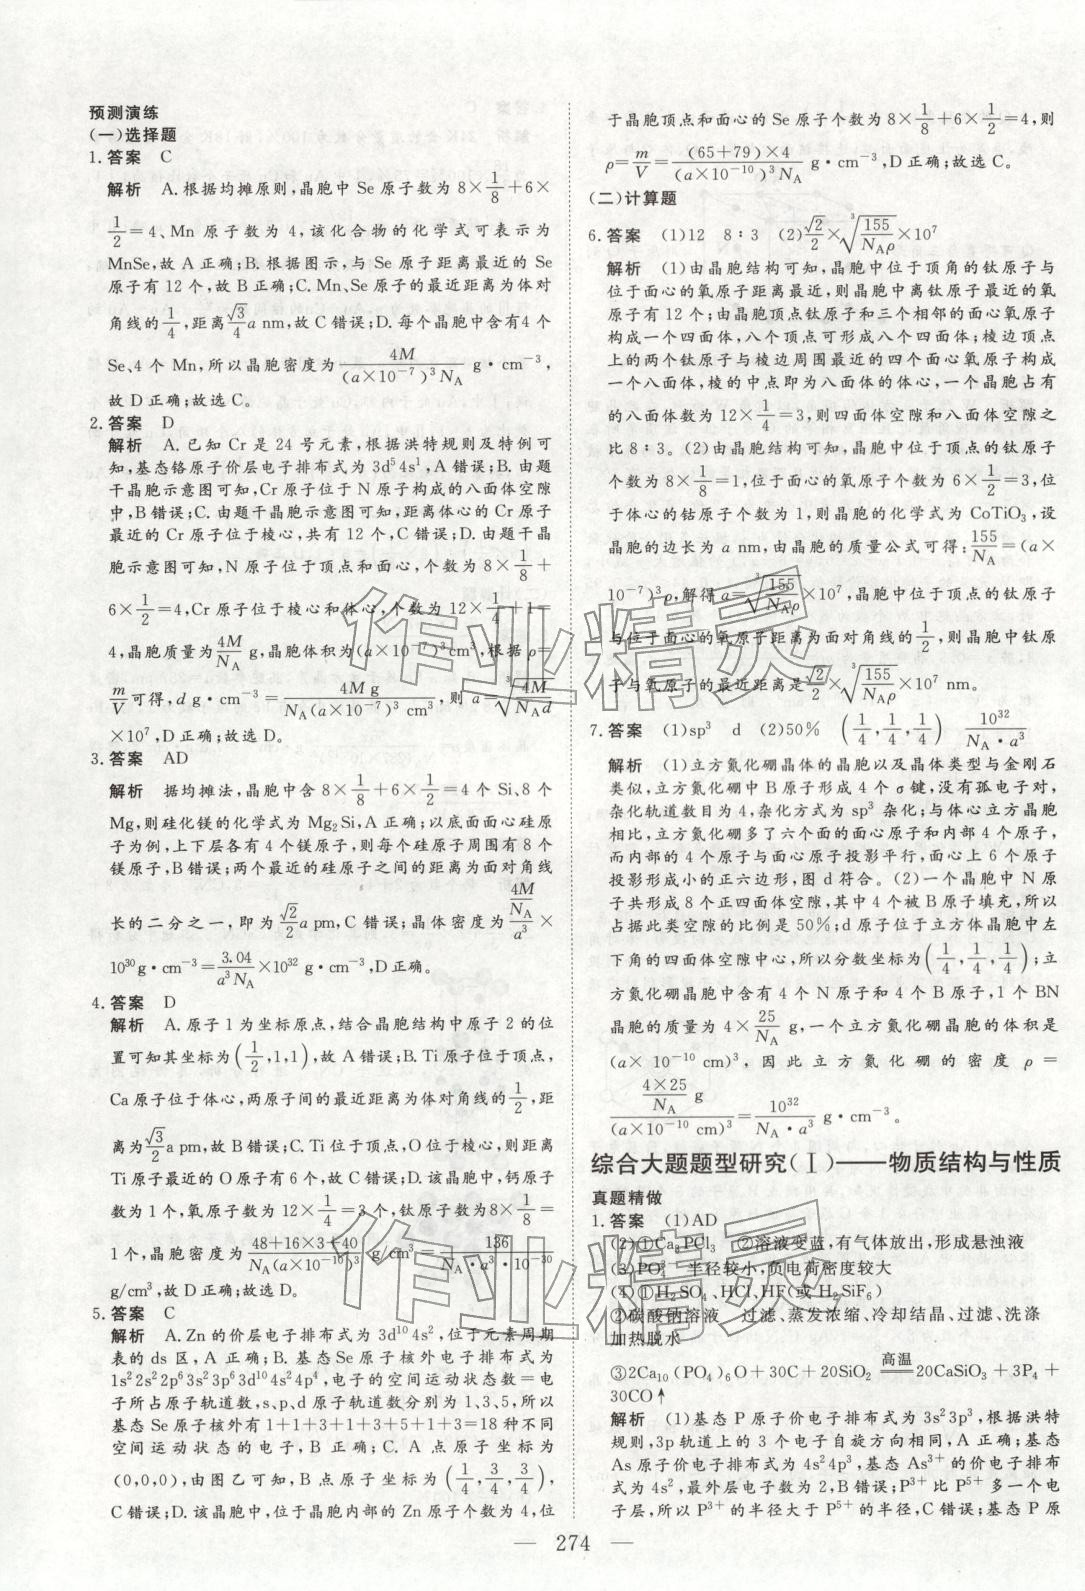 预测演练
(一)选择题
1. 答案 C
解析 A. 根据均摊原则,晶胞中 Se 原子数为 8×1/8+6×
1/2=4、Mn 原子数为 4,该化合物的化学式可表示为
MnSe,故 A 正确;B. 根据图示,与 Se 原子距离最近的 Se
原子有 12 个,故 B 正确;C. Mn、Se 的最近距离为体对
角线的1/4,距离√3/4 a nm,故 C 错误;D. 每个晶胞中含有4 个
Se、4 个 Mn,所以晶胞密度为4M/((a×10⁻⁷)³N_A) g·cm⁻³,
故 D 正确;故选 C。
2. 答案 D
解析 A. 已知 Cr 是 24 号元素,根据洪特规则及特例可
知,基态铬原子价层电子排布式为 3d⁵4s¹,A 错误;B. 由题
干晶胞示意图可知,Cr 原子位于 N 原子构成的八面体空隙
中,B 错误;C. 由题干晶胞示意图可知,距离体心的 Cr 原子
最近的 Cr 原子位于棱心,共有 12 个,C 错误;D. 由题干晶
胞示意图可知,N 原子位于顶点和面心,个数为 8×1/8+
6×1/2=4,Cr 原子位于棱心和体心,个数为 12×1/4+1=
4,晶胞质量为4M/N_A g,晶胞体积为(a×10⁻⁷)³cm³,根据 ρ=
m/V可得,d g·cm⁻³=4M g/(N_A(a×10⁻⁷)³ cm³),则 a=∛(4M/(N_A d))
×10⁷,D 正确;故选 D。
3. 答案 AD
解析 据均摊法,晶胞中含 8×1/8+6×1/2=4 个 Si、8 个
Mg,则硅化镁的化学式为 Mg₂Si,A 正确;以底面面心硅原
子为例,上下层各有 4 个镁原子,则每个硅原子周围有 8 个
镁原子,B 错误;两个最近的硅原子之间的距离为面对角线
长的二分之一,即为√2/2 a pm,C 错误;晶体密度为(4M/N_A)/a³×
10³⁰g·cm⁻³=3.04/(a³N_A)×10³² g·cm⁻³,D 正确。
4. 答案 D
解析 A. 原子 1 为坐标原点,结合晶胞结构中原子 2 的位
置可知其坐标为(1/2,1,1),故 A 错误;B. Ti 原子位于顶点,
Ca 原子位于体心,两原子间的最近距离为体对角线的1/2,距
离为√3/2 a pm,故 B 错误;C. Ti 位于顶点,O 位于棱心,则距离
Ti 原子最近的 O 原子有 6 个,故 C 错误;D. 晶胞中,钙原子
数为 1 个,氧原子数为 12×1/4=3 个,钛原子数为8×1/8=
1 个,晶胞密度为(48+16×3+40)/(N_A(a×10⁻¹⁰)³) g/cm³=136/(N_A·a³·10⁻³⁰)
g/cm³,故 D 正确;故选 D。
5. 答案 C
解析 A. Zn 的价层电子排布式为 3d¹⁰4s²,位于元素周期
表的 ds 区,A 正确;B. 基态Se 原子核外电子排布式为
1s²2s²2p⁶3s²3p⁶3d¹⁰4s²4p⁴,电子的空间运动状态数=电
子所占原子轨道数,s、p、d 原子轨道数分别为 1、3、5,所以
基态 Se 原子核外有 1+1+3+1+3+5+1+3=18 种不同
空间运动状态的电子,B 正确;C. A 点原子坐标为
(0,0,0),由图乙可知,B 点原子坐标为(1/4,3/4,3/4),
C 错误;D. 该晶胞中,位于晶胞内部的 Zn 原子个数为 4,位
于晶胞顶点和面心的 Se 原子个数为 8×1/8+6×1/2=4,则
ρ=m/V=((65+79)×4)/((a×10⁻¹⁰)³N_A) g·cm⁻³,D 正确;故选 C。
(二)计算题
6. 答案 (1)12 8∶3 (2)√2/2×∛(155/(N_Aρ))×10⁷
解析 (1)由晶胞结构可知,晶胞中位于顶角的钛原子与
位于面心的氧原子距离最近,则晶胞中离钛原子最近的氧
原子有 12 个;由晶胞顶点钛原子和三个相邻的面心氧原子
构成一个四面体,八个顶点可形成八个四面体;棱边顶点
上的两个钛原子与棱边周围最近的四个面心氧原子构成
一个八面体,棱的中点即为八面体的体心,一个晶胞占有
的八面体数为 12×1/4=3,则四面体空隙和八面体空隙之
比 8∶3。(2)由晶胞结构可知,晶胞中位于顶点的钛原子
个数为 8×1/8=1,位于面心的氧原子个数为 6×1/2=3,位
于体心的钴原子个数为 1,则晶胞的化学式为 CoTiO₃,设
晶胞的边长为 a nm,由晶胞的质量公式可得:155/N_A=(a×
10⁻⁷)³ρ,解得 a=∛(155/(N_Aρ))×10⁷,晶胞中位于顶点的钛原子
与位于面心的氧原子距离为面对角线的1/2,则晶胞中钛原
子与氧原子的最近距离是√2/2×∛(155/(N_Aρ))×10⁷ nm。
7. 答案 (1)sp³ d (2)50% (1/4,1/4,1/4) 10³²/(N_A·a³)
解析 (1)立方氮化硼晶体的晶胞以及晶体类型与金刚石
类似,立方氮化硼中 B 原子形成 4 个 σ 键,没有孤电子对,
杂化轨道数目为 4,杂化方式为 sp³ 杂化;与体心立方晶胞
相比,立方氮化硼多了六个面的面心原子和内部 4 个原子,
而内部的 4 个原子与面心原子投影平行,面心上 6 个原子
投影形成小的正六边形,图 d 符合。(2)一个晶胞中 N 原
子共形成 8 个正四面体空隙,其中 4 个被 B 原子填充,所以
占据此类空隙的比例是 50%;d 原子位于立方体晶胞中左
下角的四面体空隙中心,所以分数坐标为(1/4,1/4,1/4);立
方氮化硼晶胞中含有 4 个 N 原子和 4 个 B 原子,1 个 BN
晶胞的质量为 4×25/N_A g,一个立方氮化硼晶胞的体积是
(a× 10⁻¹⁰ cm)³,因此立方氮化硼的密度 ρ=
(4×25/N_A g)/(a×10⁻¹⁰ cm)³=10³²/(N_A·a³) g·cm⁻³。
综合大题题型研究(Ⅰ)——物质结构与性质
真题精做
1. 答案 (1)AD
(2)①Ca₂PCl₃ ②溶液变蓝,有气体放出,形成悬浊液
(3)PO₄³⁻ 半径较小,负电荷密度较大
(4)①H₂SO₄、HCl、HF(或 H₂SiF₆)
②碳酸钠溶液 过滤、蒸发浓缩、冷却结晶、过滤、洗涤
加热脱水
③2Ca₁₀(PO₄)₆O+30C+20SiO₂ =高温= 20CaSiO₃+3P₄+
30CO↑
解析 (1)基态 P 原子价电子排布式为 3s²3p³,根据洪特
规则,3p轨道上的 3 个电子自旋方向相同,A 正确;基态
As 原子价电子排布式为 4s²4p³,基态 As³⁺ 的价电子排布
式为4s²,最外层电子数为 2,B 错误;P³⁺比 P⁵⁺ 多一个电
子层,所以 P³⁺ 的半径大于 P⁵⁺ 的半径,C 错误;基态 P 原
— 274 —
作业精灵
作业精灵